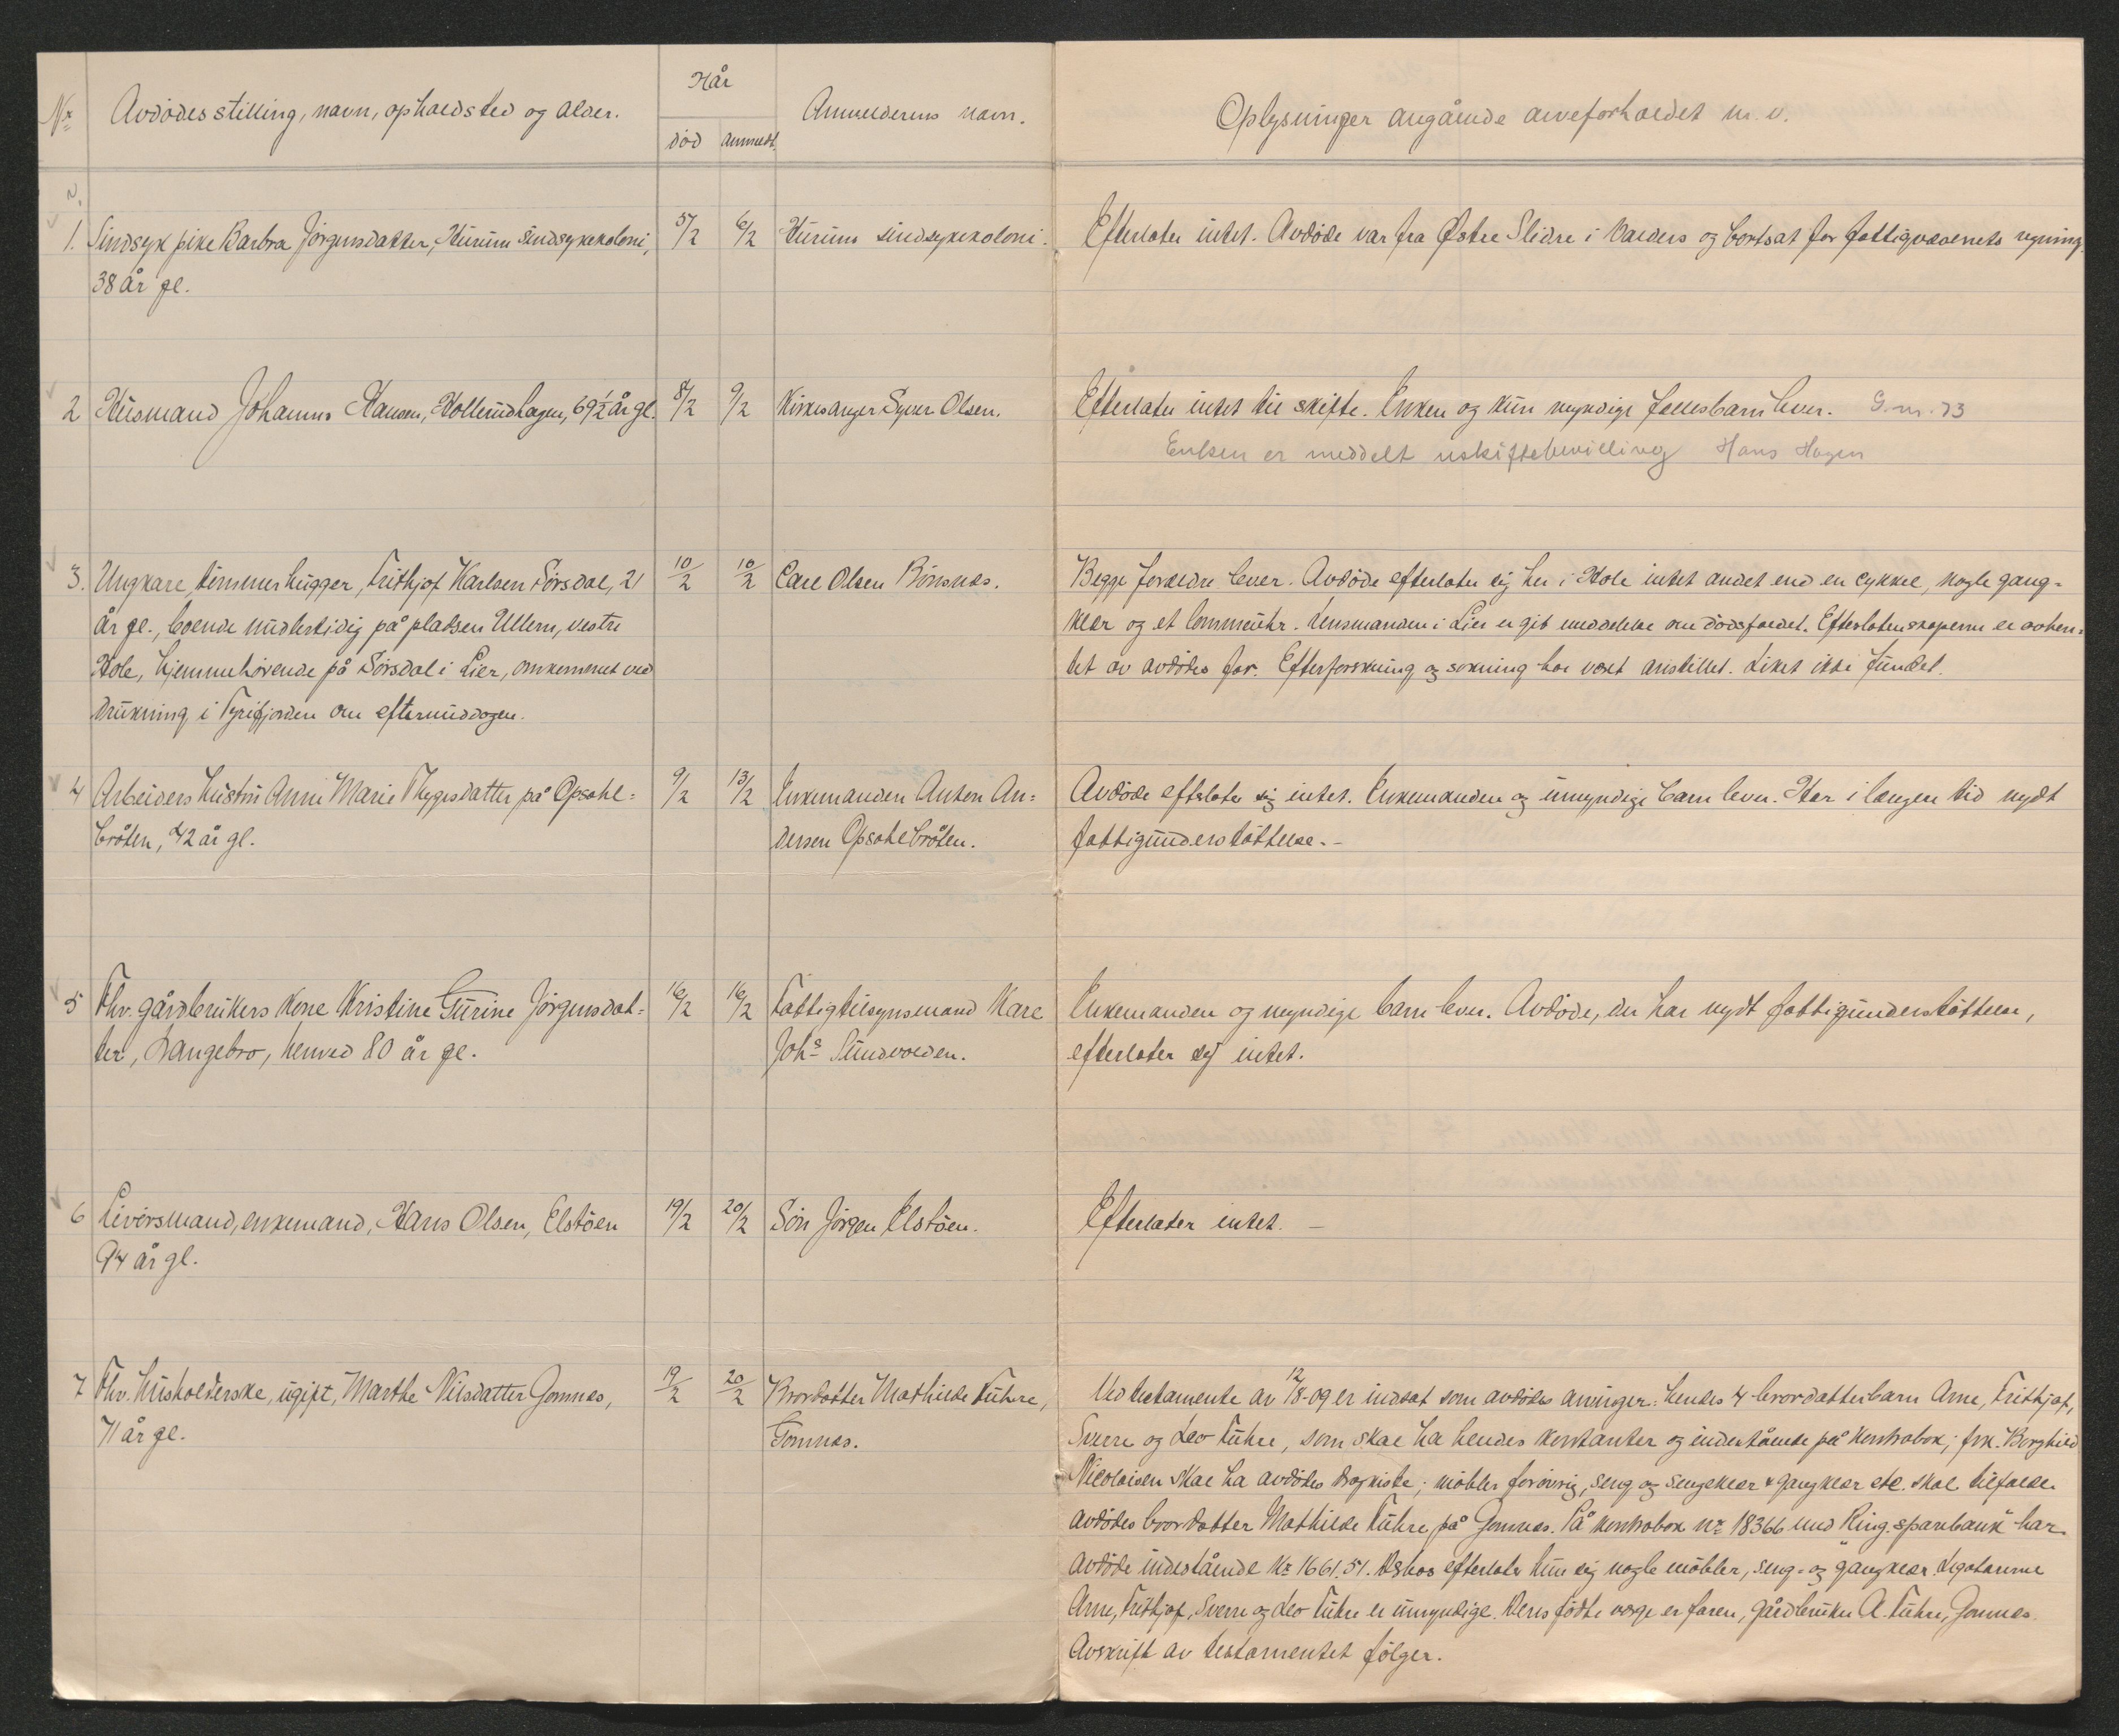 Nr Avdödes stilling, navn, opholdsted og alder. Når död anmeldt. Anmelderens navn. Oplysninger angående arveforholdet m. v.
1. Sindsyk pike Barbra Jörgensdatter, Hurum sindsykekoloni, 5/2 6/2 Hurum sindsykekoloni. Efterlater intet. Avdöde var fra Østre Slidre i Valders og bortsat for fattigvæsenets regning.
38 år gl.
2 Husmand Johannes Hansen, Hollerudhagen, 69½ år gl. 8/2 9/2 Kirkesanger Syver Olsen. Efterlater intet til skifte. Enken og kun myndige fællesbarn lever. G.m. 73
Enken er meddelt uskiftebevilling Hans Hagen
3. Ungkare tömmerhugger, Frithjof Karlsen Sörsdal, 21 10/2 10/2 Carl Olsen Rönsnes. Begge forældre lever. Avdöde efterlater sig her i Hole intet andet end en cykkel, nogle gang=
år gl., boende midlertidig på pladsen Ullern, vestre klær og et lommeuhr. Lensmanden i Lier er git meddelelse om dödsfaldet. Efterlatenskaperne er avhen=
Hole, hjemmehörende på Sörsdal i Lier, omkommet ved tet av avdödes far. Efterforskning og sokning har været anstillet. Liket ikke fundet.
drukning i Tyrifjorden om eftermiddagen.
4 Arbeiders hustru Anne Marie Thygesdatter på Opsahl= 9/2 13/2 Enkemanden Anton An= Avdöde efterlater sig intet. Enkemanden og umyndige barn lever. Har i længere tid nydt
bråten, 42 år gl. dersen Opsahlbråten. fattigunderstöttelse. -
5 Fhv. gårdbrukers kone Kristine Gurine Jörgensdat= 16/2 16/2 Fattigtilsynsmand Karl Enkemanden og myndige barn lever. Avdöde, der har nydt fattigunderstöttelse,
ter, Langebro, henved 80 år gl. Johs Sundvolden. efterlater sig intet.
6 Livörsmand, enkemand, Hans Olsen, Elstöen 19/2 20/2 Sön Jörgen Elstöen. Efterlater intet. —
94 år gl.
7 Fhv. husholderske, ugift, Marthe Nilsdatter Gomnæs, 19/2 20/2 Brordatter Mathilde Fuhre, Ved testamente av 12/8-09 er indsat som avdödes arvinger: hendes 4 brordatterbarn Arne, Frithjof,
71 år gl. Gomnæs. Sverre og Leo Fuhre, som skal ha hendes kontanter og indestående på kontrabok; frk. Borghild
Nicolaisen skal ha avdödes dragkiste; möbler forövrig, seng og sengeklær & gangklær etc. skal tilfalde
avdödes brordatter Mathilde Fuhre på Gomnæs. På kontrabok nr 18366 med "Ring. sparebank" har
avdöde indestående Kr 1661.51. Deshos efterlater hun sig nogle möbler, seng- og gangklær. Legatarerne
Arne, Frithjof, Sverre og Leo Fuhre er umyndige. Deres födte værge er faren, gårdbruker A. Fuhre, Gomnæs.
Avskrift av testamentet fölger.